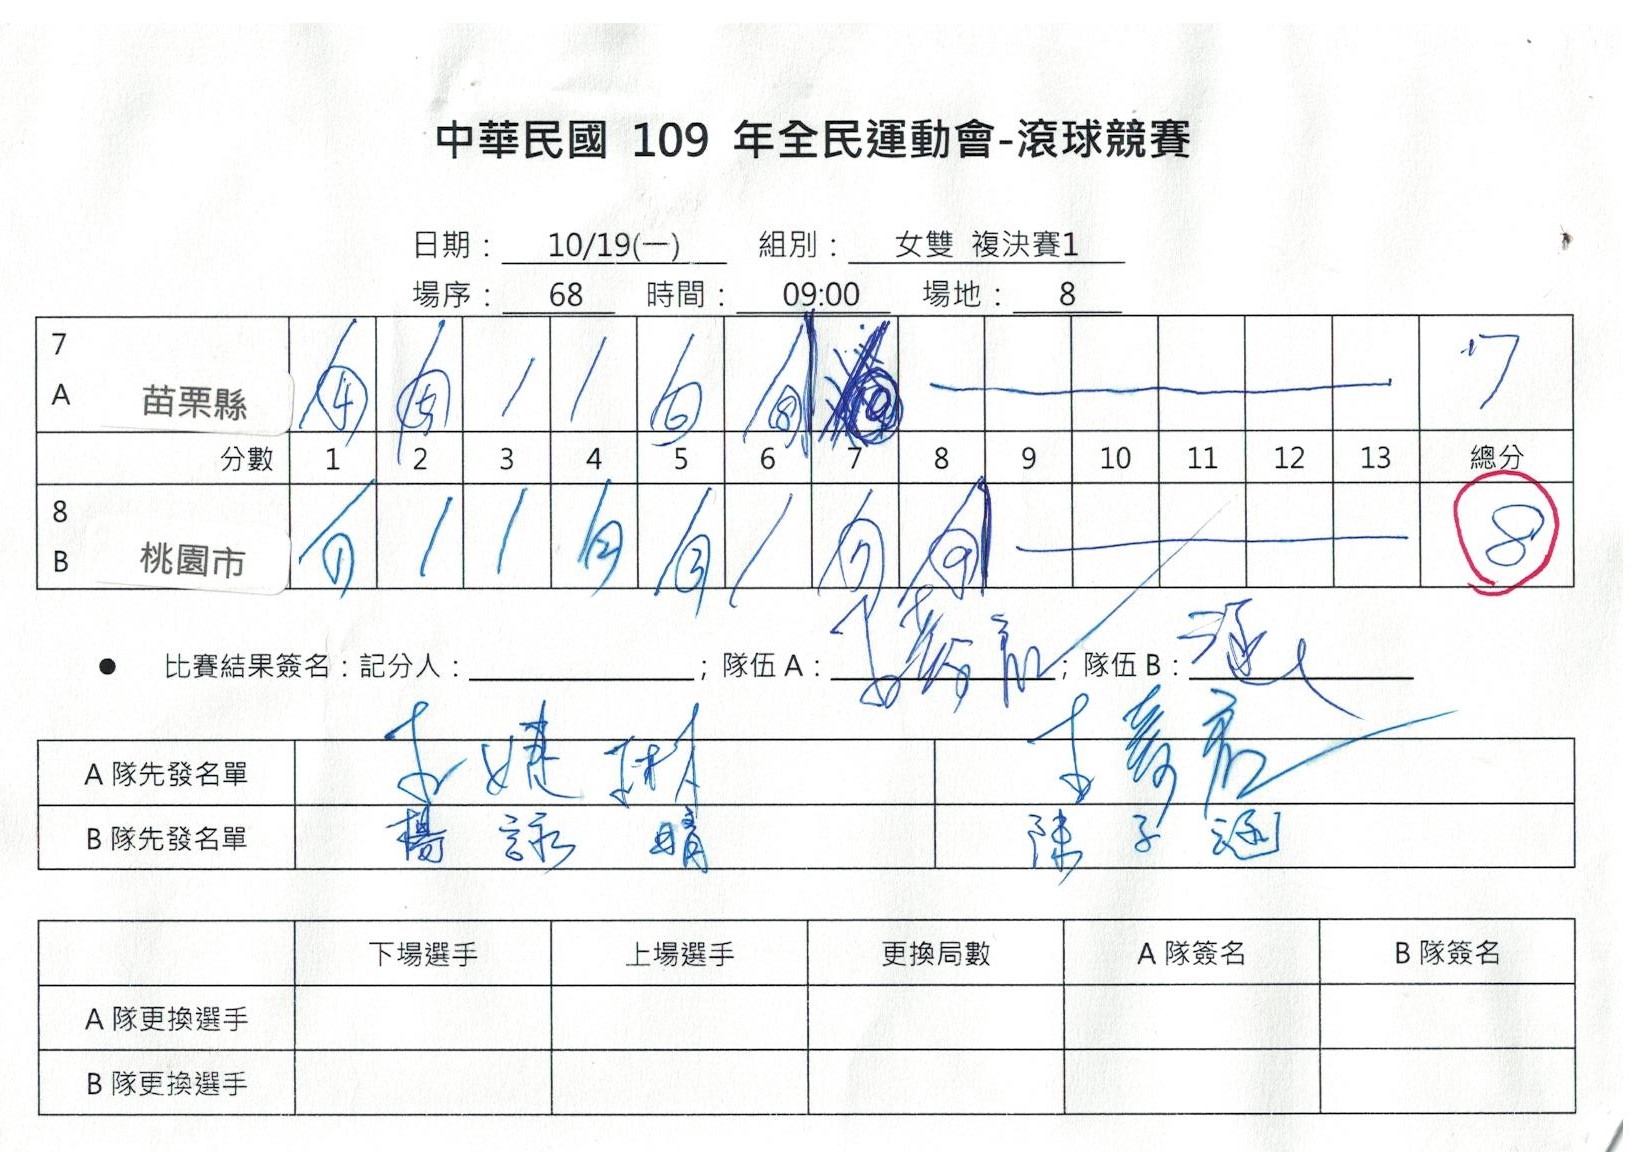 中華民國 109 年全民運動會-滾球競賽
日期： 10/19(一) 組別： 女雙 複決賽1
場序： 68 時間： 09:00 場地： 8
7
A 苗栗縣 ④ ⑤ / / ⑥ ⑧ 7
分數 1 2 3 4 5 6 7 8 9 10 11 12 13 總分
8
B 桃園市 ① / / ② ③ / ⑦ ⑨ 8
● 比賽結果簽名：記分人： ；隊伍 A： ；隊伍 B：
A 隊先發名單
B 隊先發名單 楊詠晴 陳子涵
下場選手 上場選手 更換局數 A 隊簽名 B 隊簽名
A 隊更換選手
B 隊更換選手